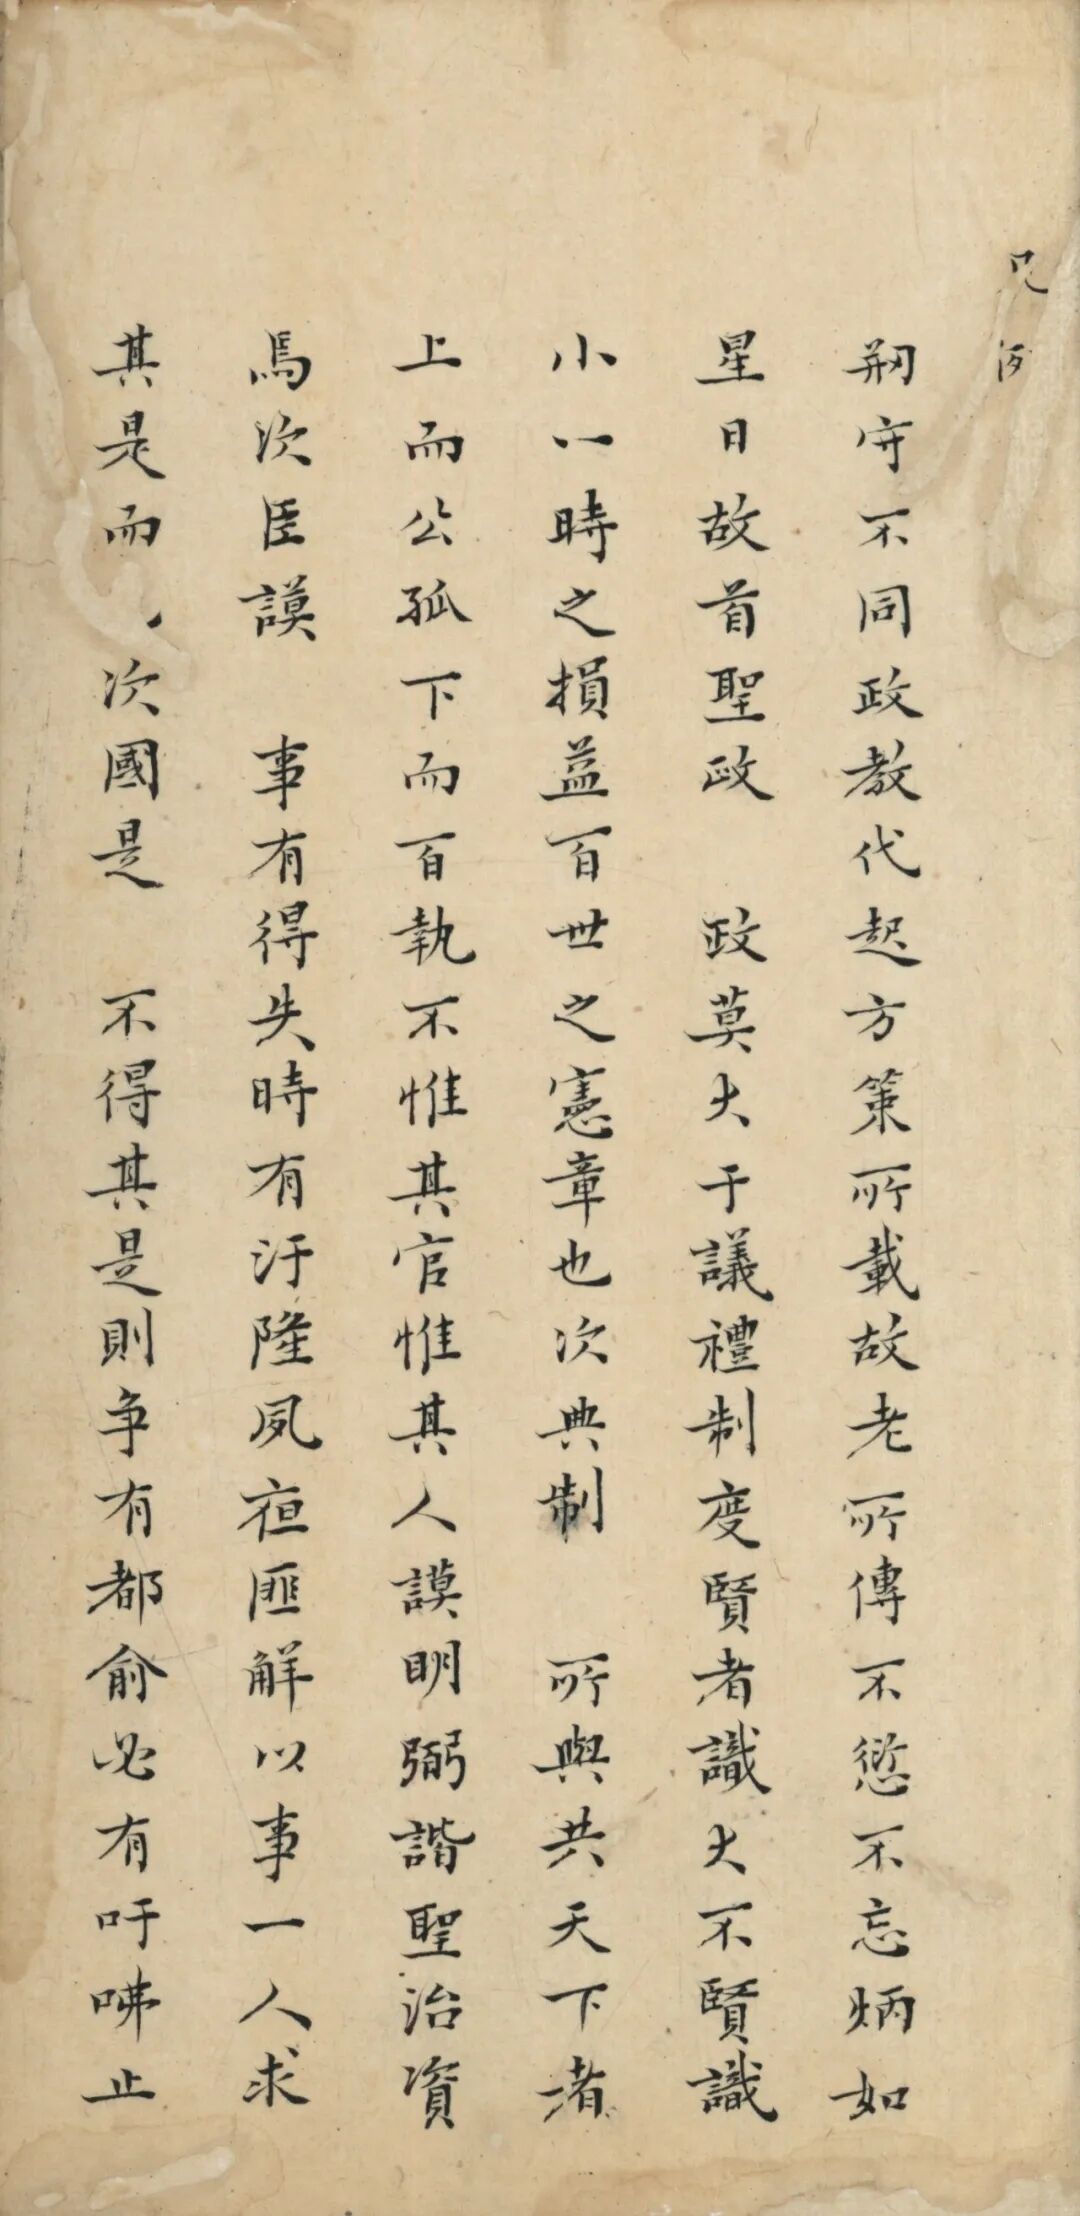 刱守不同政教代起方策所載故老所傳不愆不忘炳如
星日故首聖政　政莫大于議禮制度賢者識大不賢識
小一時之損益百世之憲章也次典制　所與共天下者
上而公孤下而百執不惟其官惟其人謨明弼諧聖治資
焉次臣謨　事有得失時有汙隆夙夜匪解以事一人求
其是而　次國是　不得其是則争有都俞必有吁咈止